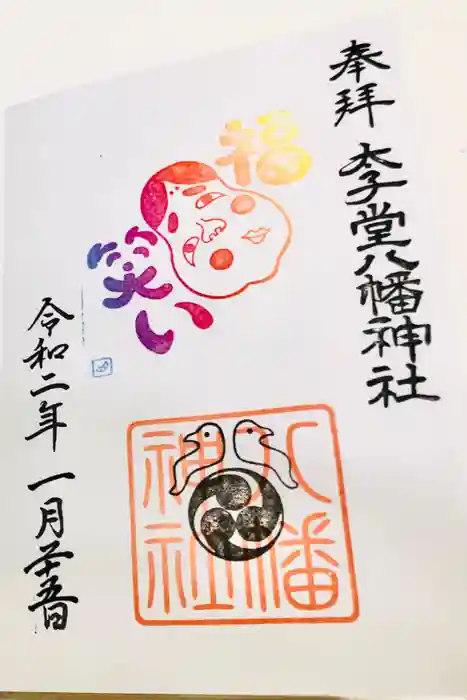 奉拝
太子堂八幡神社
福
笑い
八幡
神社
令和二年 一月廿五日